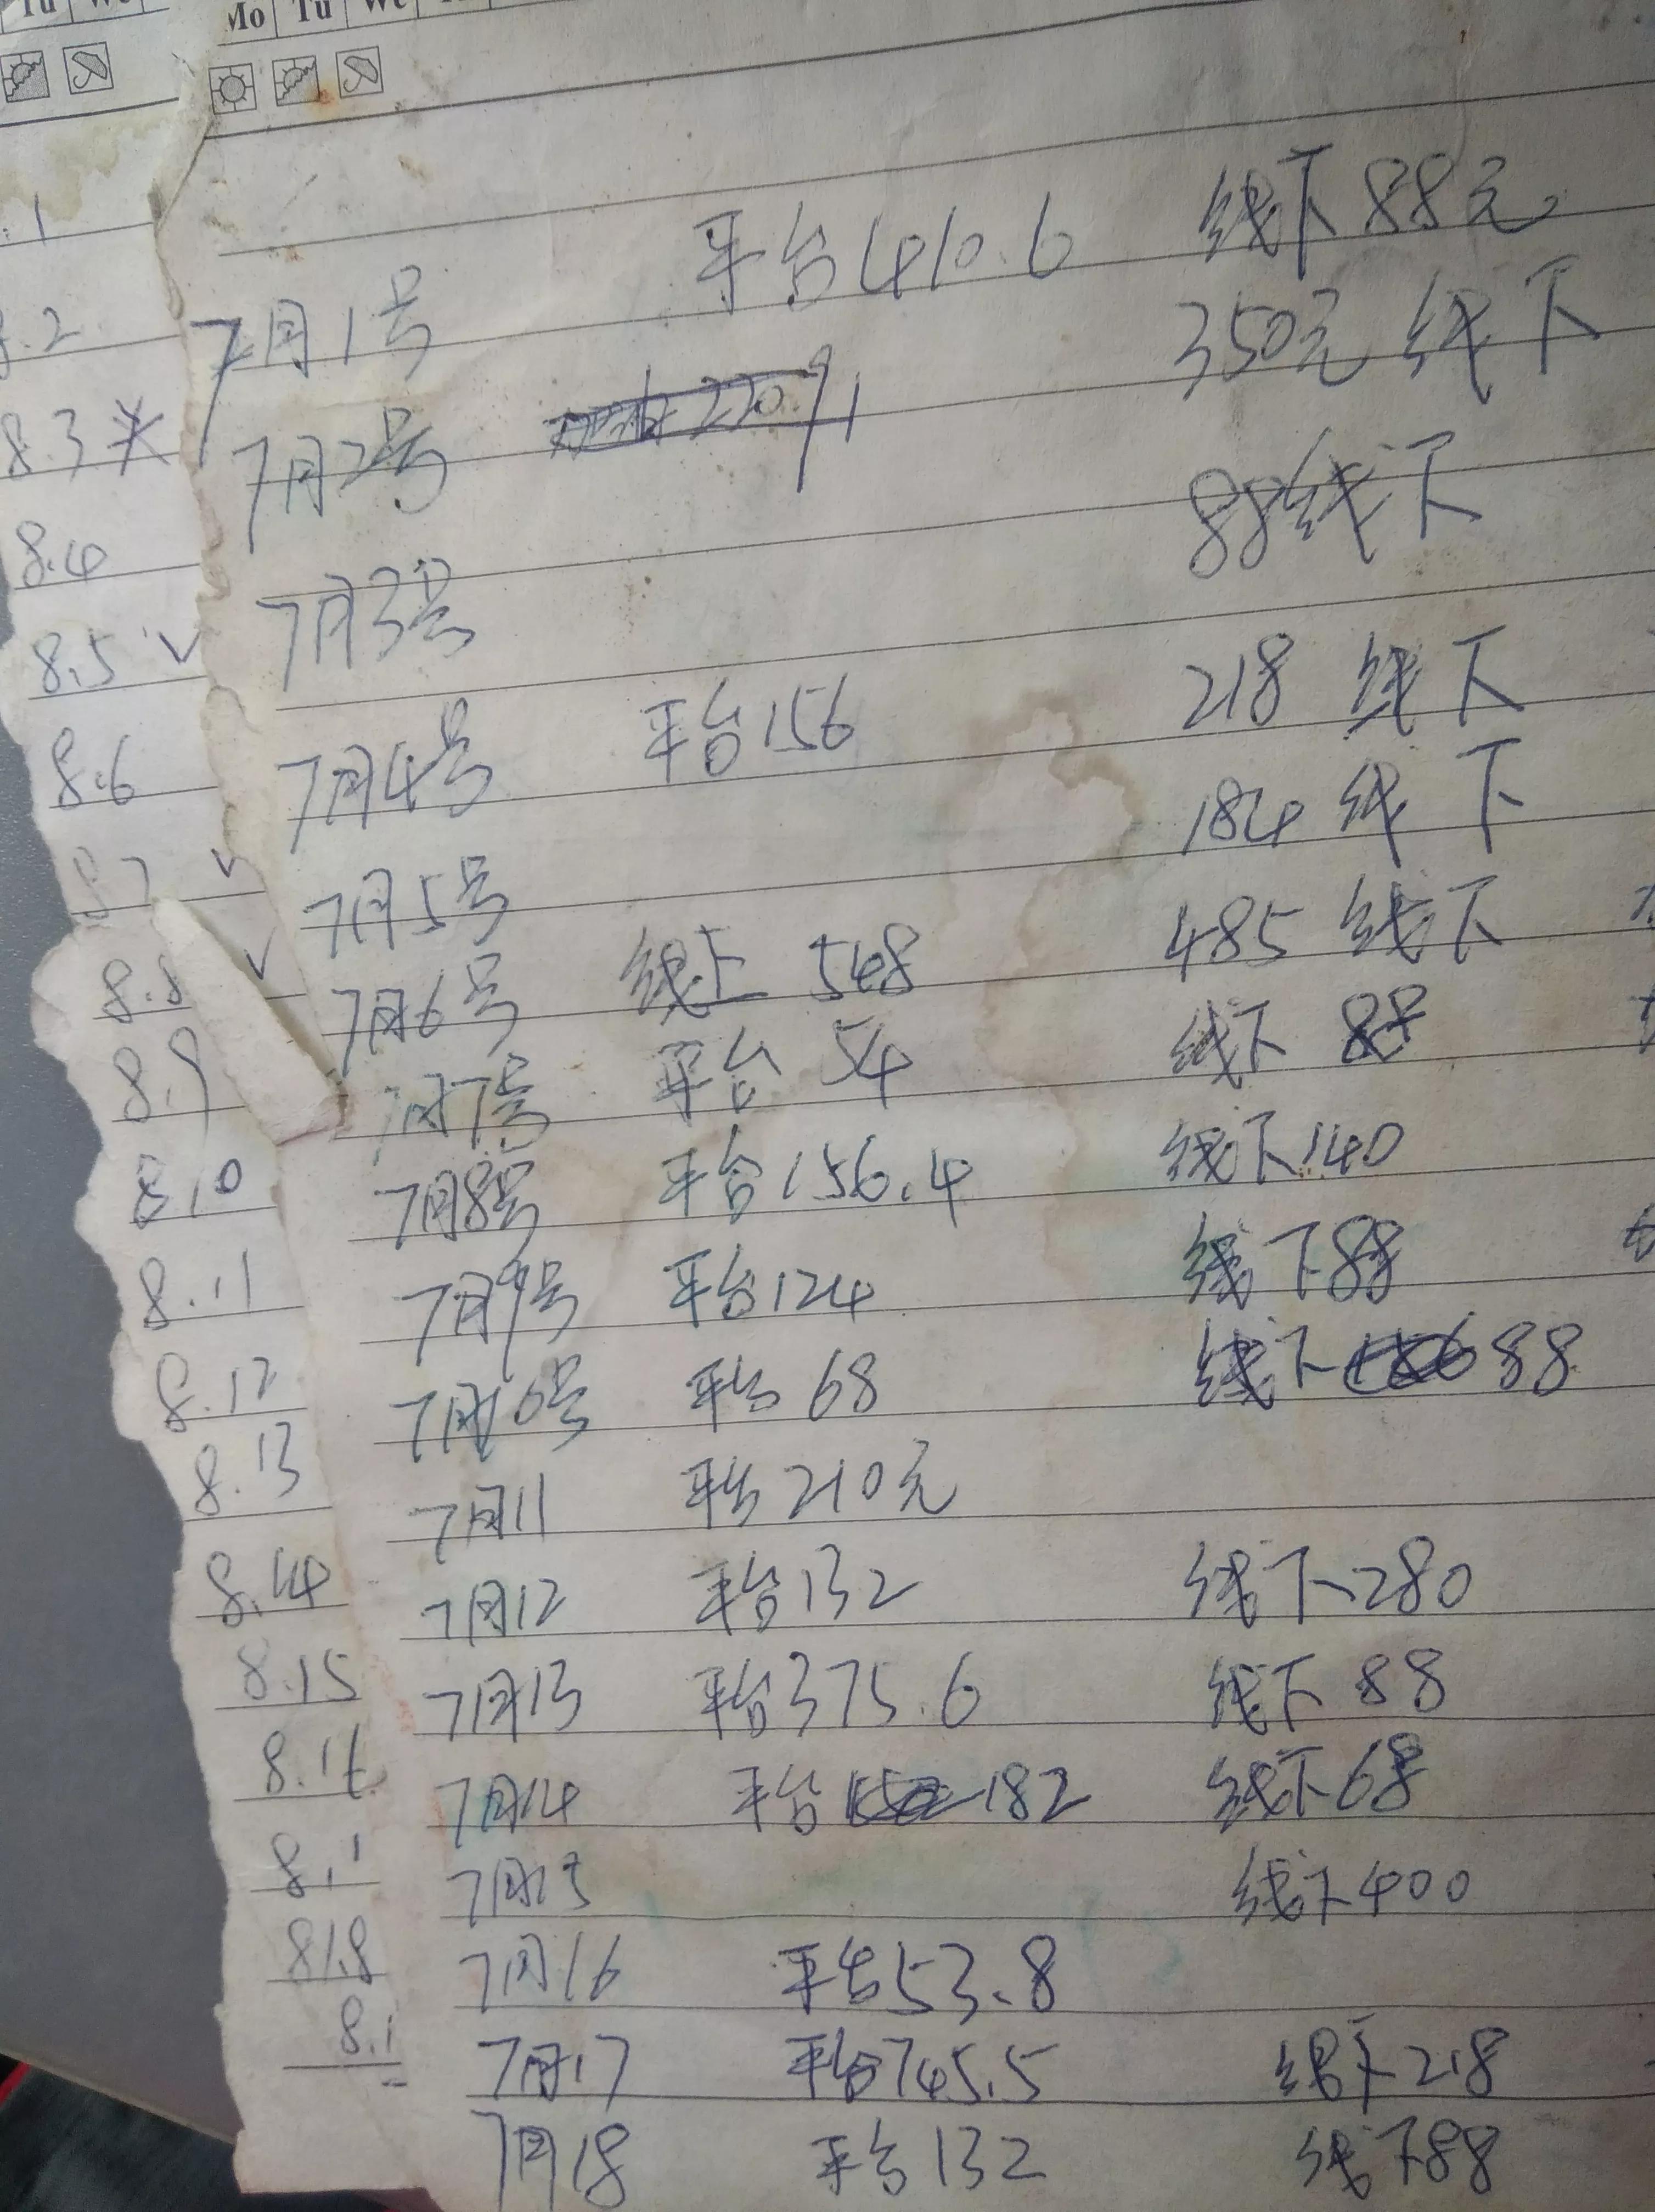 Mo Tu We
7月1号 平台410.6 线下88元
7月2号 350元 线下
7月3号 88线下
7月4号 平台156 218 线下
7月5号 184 线下
7月6号 线上 548 485 线下
7月7号 平台 54 线下 88
7月8号 平台156.4 线下140
7月9号 平台124 线下88
7月10号 平台 68 线下 88
7月11 平台210元
7月12 平台132 线下280
7月13 平台375.6 线下 88
7月14 平台 182 线下68
7月15 线下400
7月16 平台53.8
7月17 平台745.5 线下218
7月18 平台132 线下88
8.3
8.4
8.5 ✓
8.6
8.7 ✓
8.8 ✓
8.9
8.10
8.11
8.12
8.13
8.14
8.15
8.1
8.18
8.1